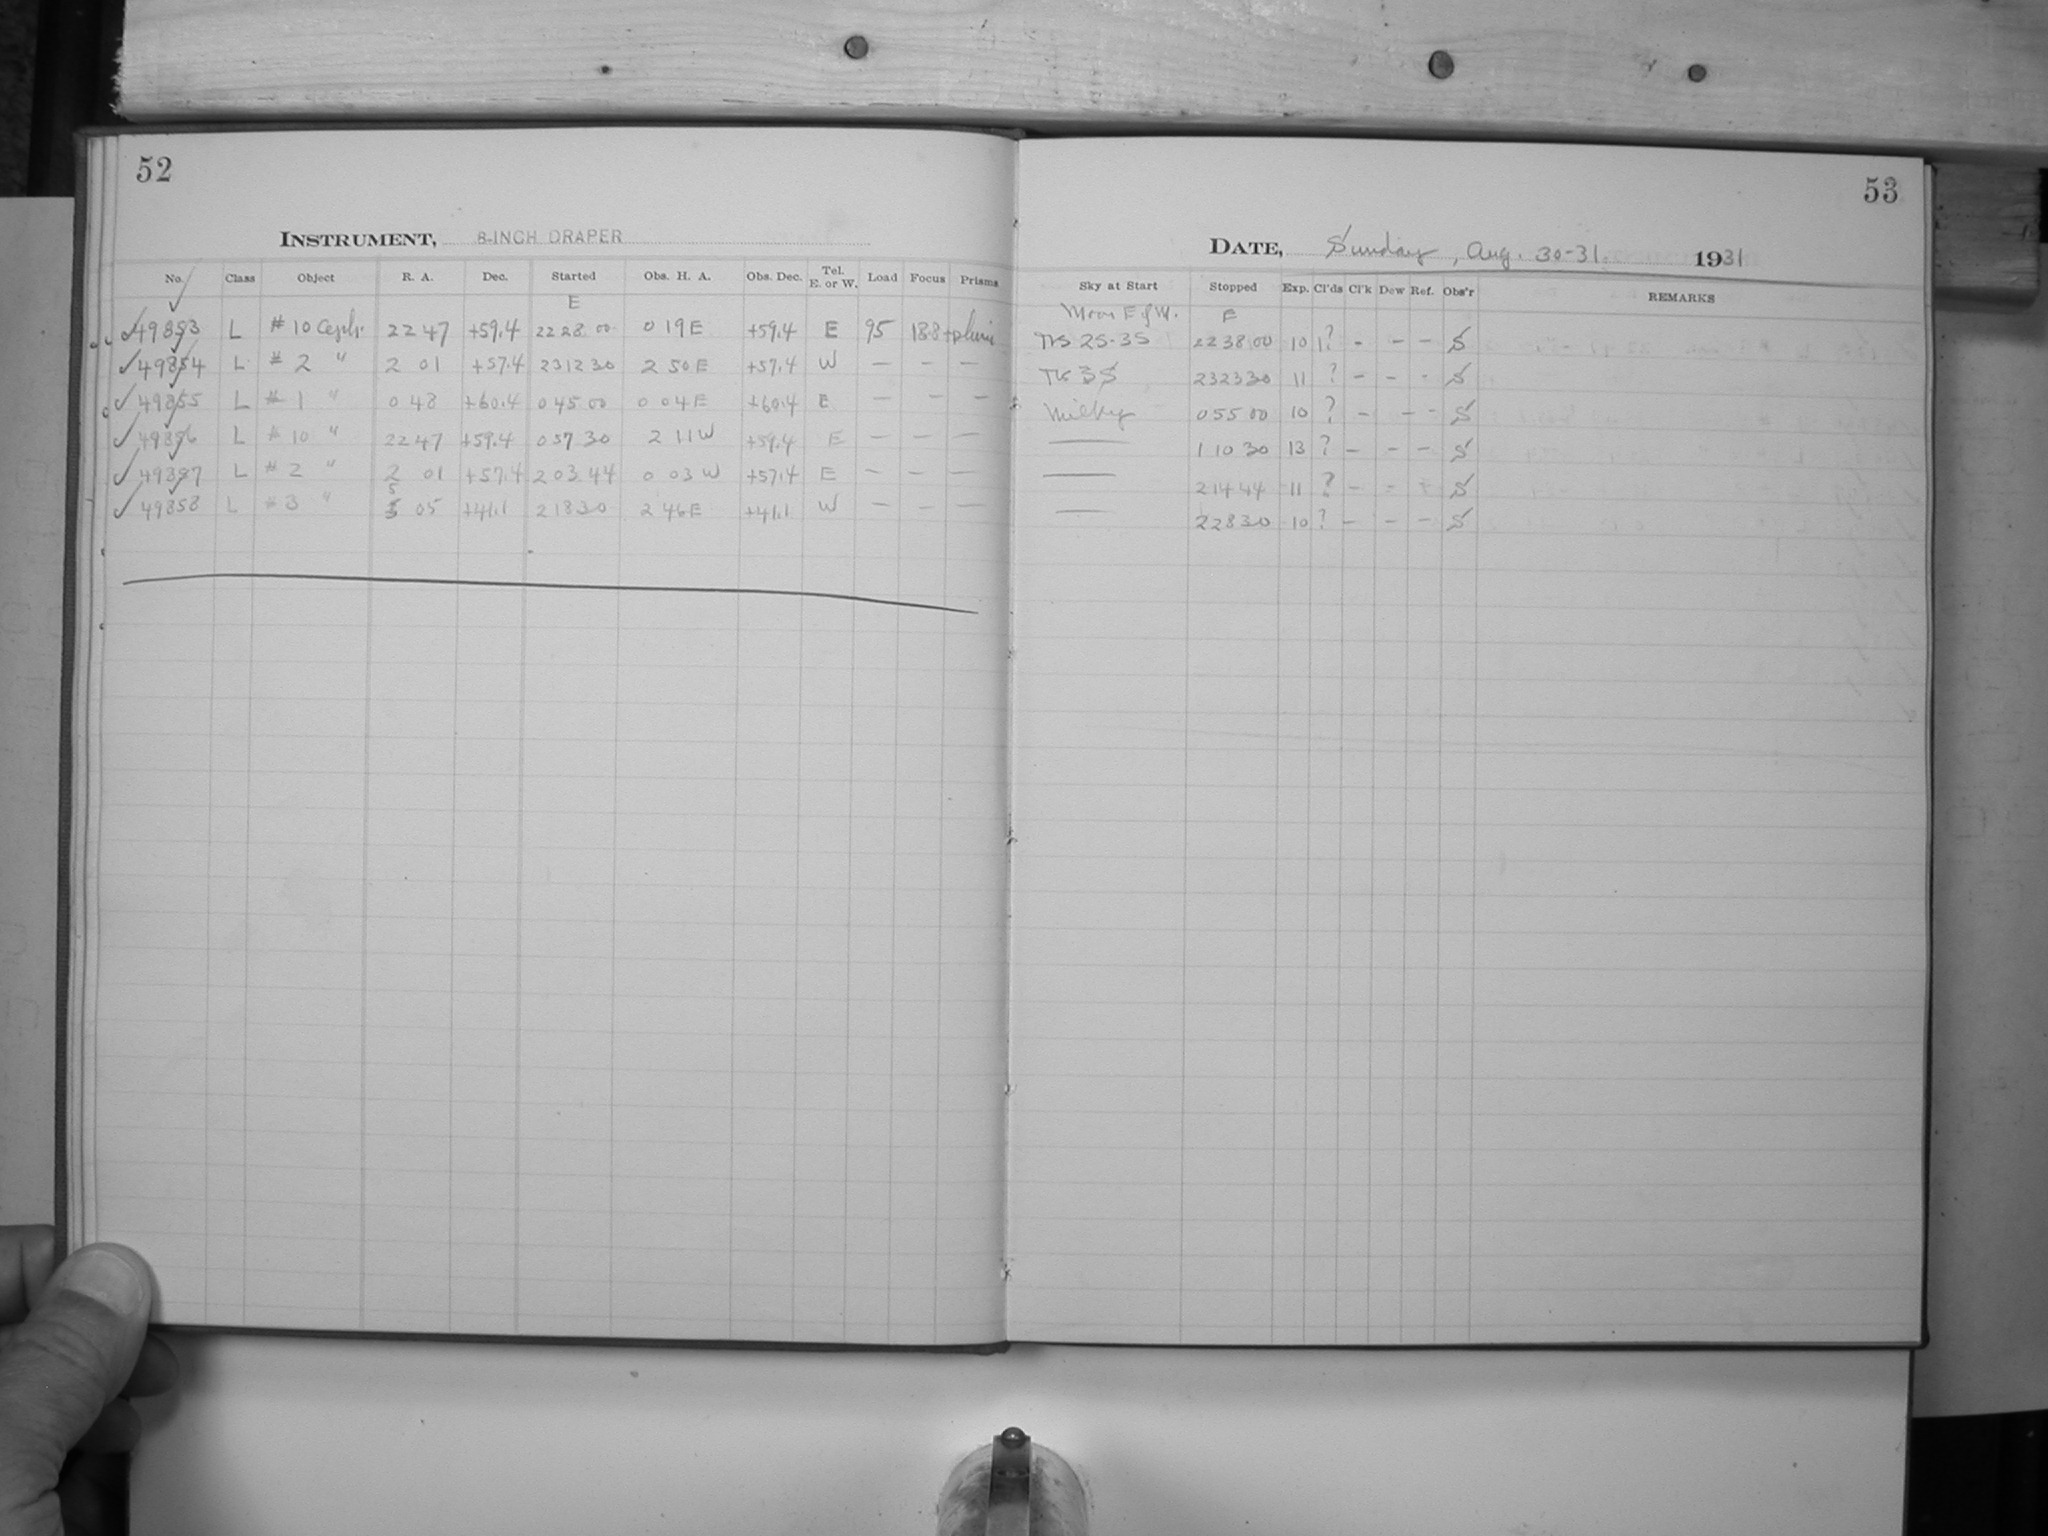 52
INSTRUMENT, 8-INCH DRAPER
No. Class Object R. A. Dec. Started Obs. H. A. Obs. Dec. Tel. E. or W. Load Focus Prisms
E
49853 L # 10 Ceph. 22 47 +59.4 22 28 00 0 19 E +59.4 E 95 18.8
49854 L # 2 " 2 01 +57.4 23 12 30 2 50 E +57.4 W — — —
49855 L # 1 " 0 48 +60.4 0 45 00 0 04 E +60.4 E — — —
49856 L # 10 " 22 47 +59.4 0 57 30 2 11 W +59.4 E — — —
49857 L # 2 " 2 01 +57.4 2 03 44 0 03 W +57.4 E — — —
49858 L # 3 " 5 05 +41.1 2 18 30 2 46 E +41.1 W — — —
53
DATE, Sunday, Aug. 30-31. 1931
Sky at Start Stopped Exp. Cl'ds Cl'k Dew Ref. Obs'r REMARKS
Moon E of M. E
2S-3S 22 38 00 10 ? - - - S
3S 23 23 30 11 ? - - - S
Milky 0 55 00 10 ? - - - S
—— 1 10 30 13 ? - - - S
—— 2 14 44 11 ? - - - S
—— 2 28 30 10 ? - - - S